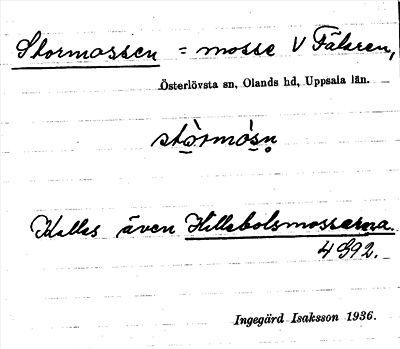 Stormossen = mosse V Fälaren,
Österlövsta sn, Olands hd, Uppsala län.
stòrmósn̥
Kallas även Hillebolsmossarna.
4 G92.
Ingegärd Isaksson 1936.